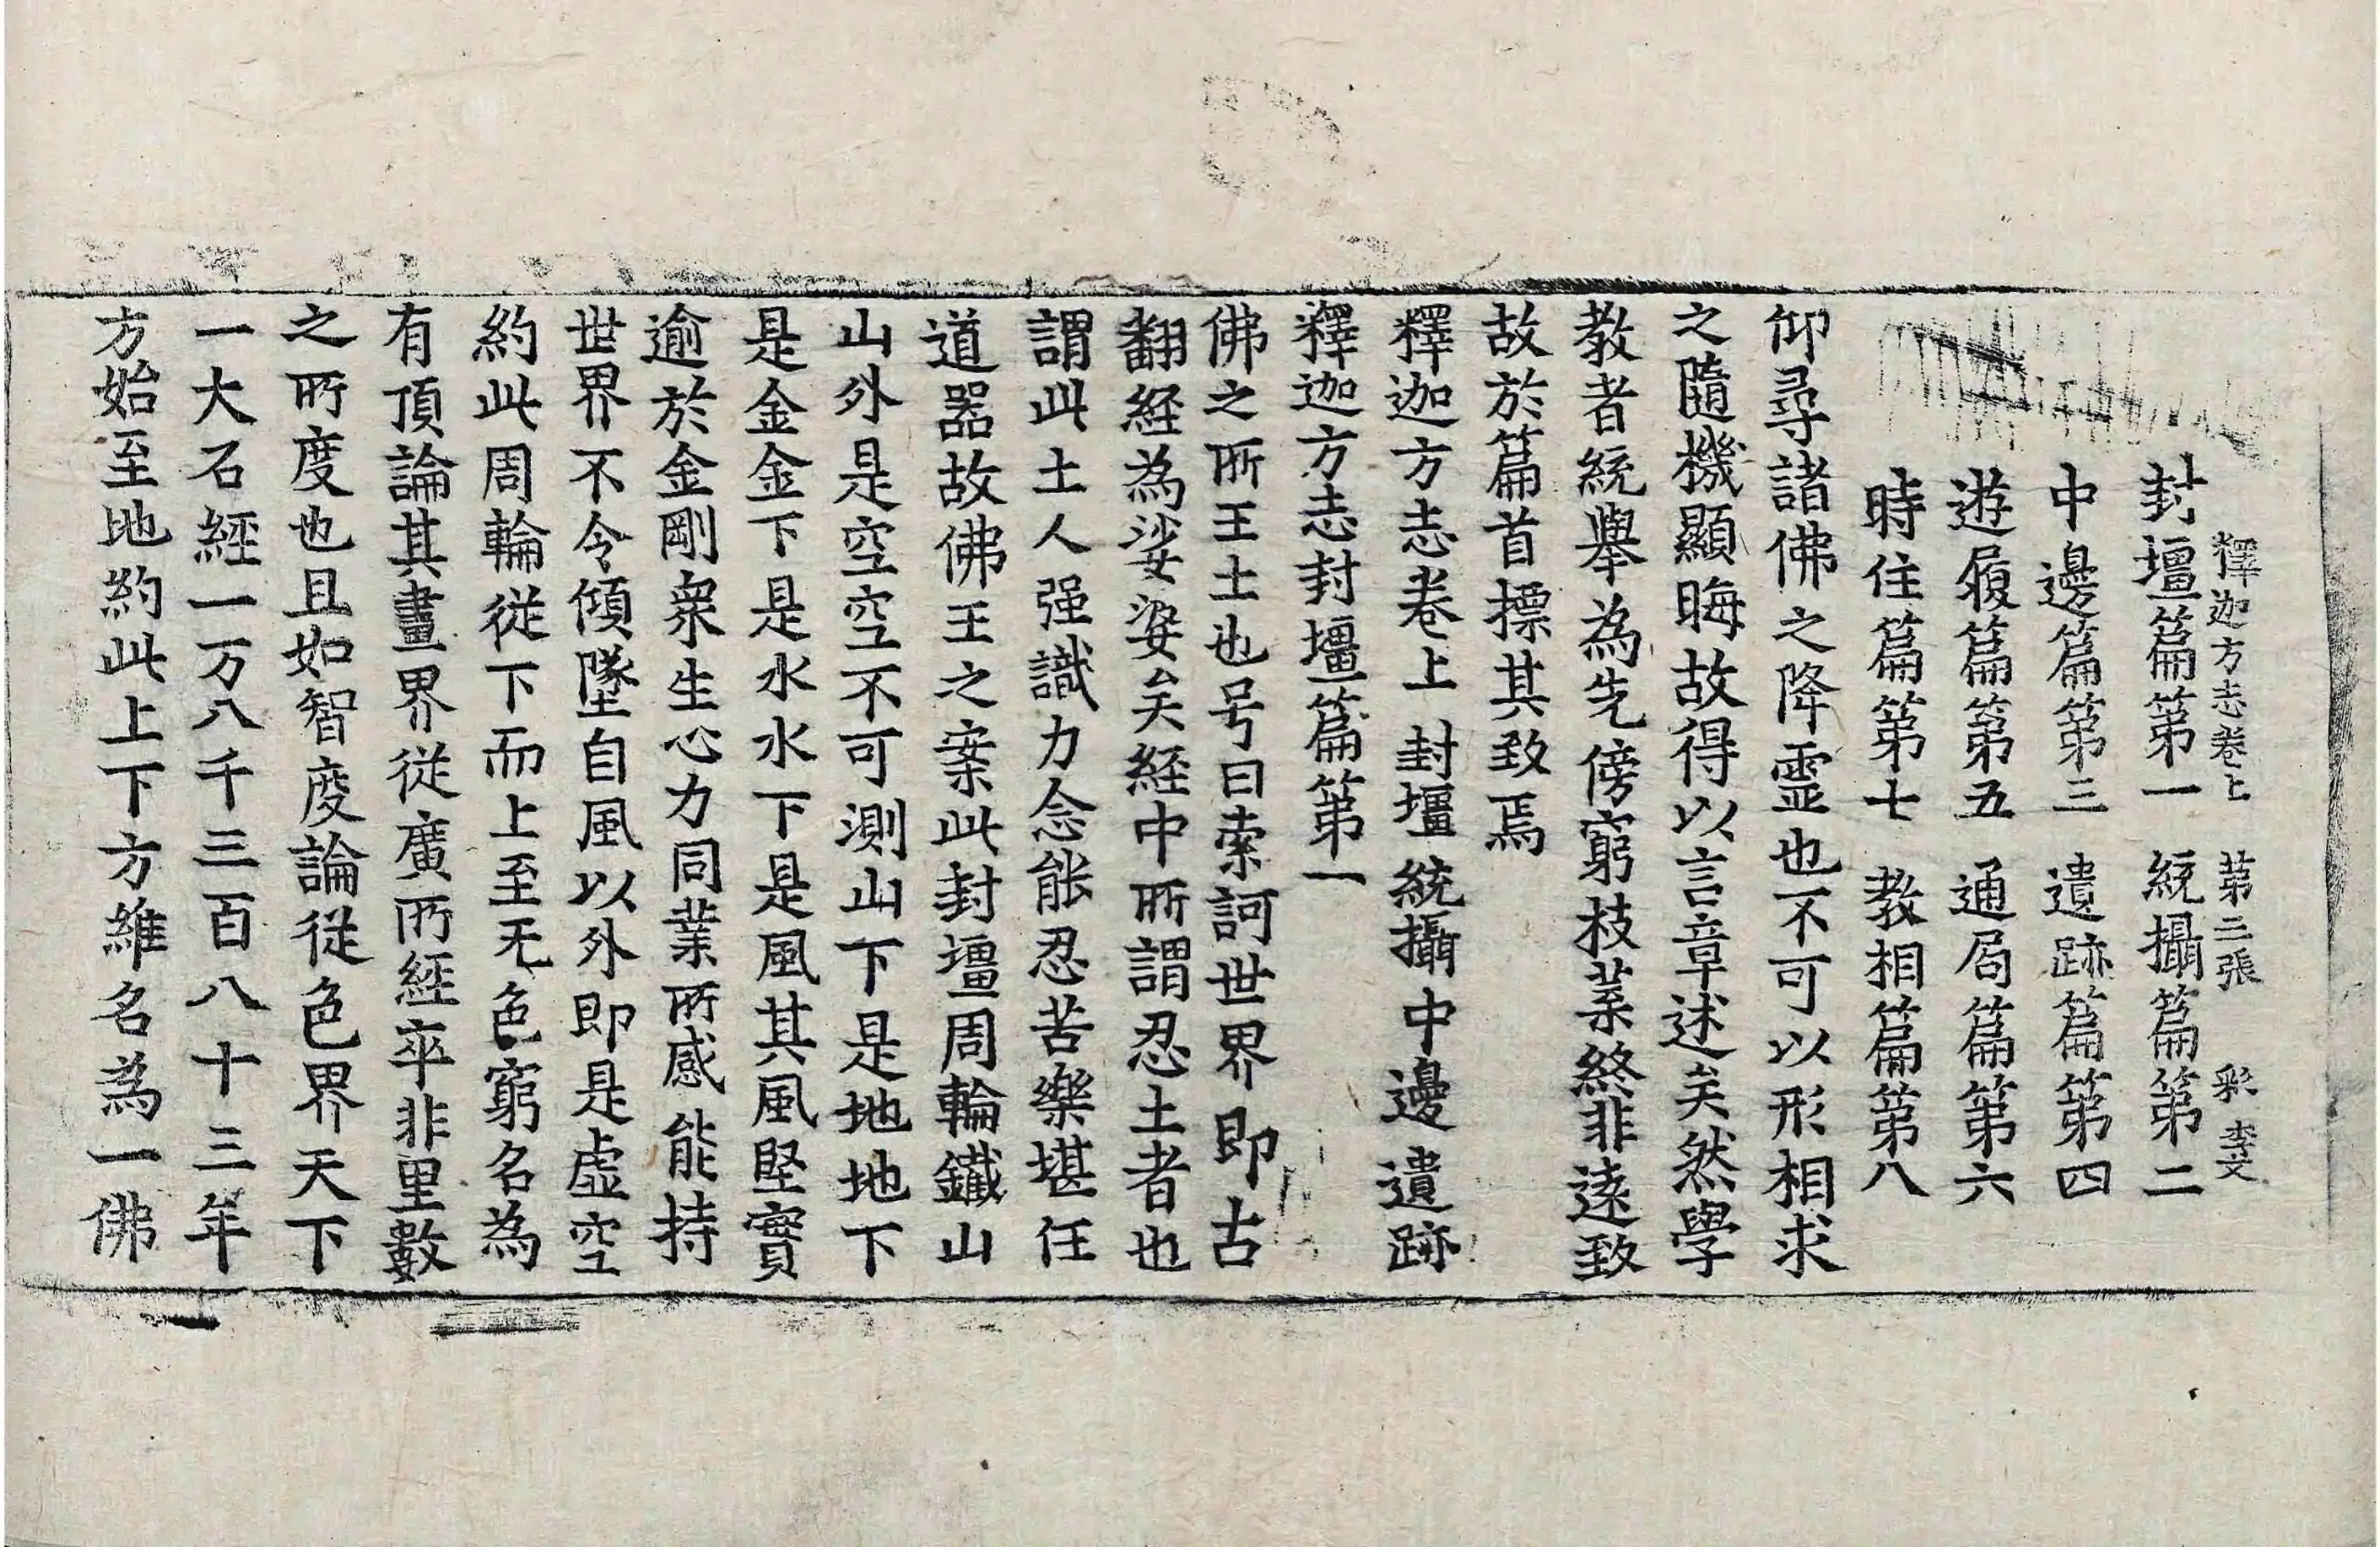 釋迦方志卷上 第二張 彩 李文
封壃篇第一 統攝篇第二
中邊篇第三 遺跡篇第四
遊履篇第五 通局篇第六
時住篇第七 教相篇第八
仰尋諸佛之降靈也不可以形相求
之隨機顯晦故得以言章述矣然學
教者統舉為先傍窮枝葉終非逺致
故於篇首摽其致焉
釋迦方志卷上 封壃 統攝 中邊 遺跡
釋迦方志封壃篇第一
佛之所王土也号曰索訶世界即古
翻經為娑婆矣経中所謂忍土者也
謂此土人强識力念能忍苦樂堪任
道器故佛王之案此封壃周輪鐵山
山外是空空不可測山下是地地下
是金金下是水水下是風其風堅實
逾於金剛衆生心力同業所感能持
世界不令傾墜自風以外即是虛空
約此周輪從下而上至无色窮名為
有頂論其畫界從廣所經卒非里數
之所度也且如智度論從色界天下
一大石經一万八千三百八十三年
方始至地約此上下方維名為一佛